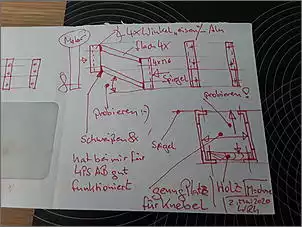 4x Winkel "eisen" - Alu
Motor
flach 4x
Spiegel
probieren :-)
probieren?
schweißen 8x
Spiegel
hat bei mir für
4PS AB gut
funktioniert
genug Platz
für Knebel
Holz
2. Mai 2020